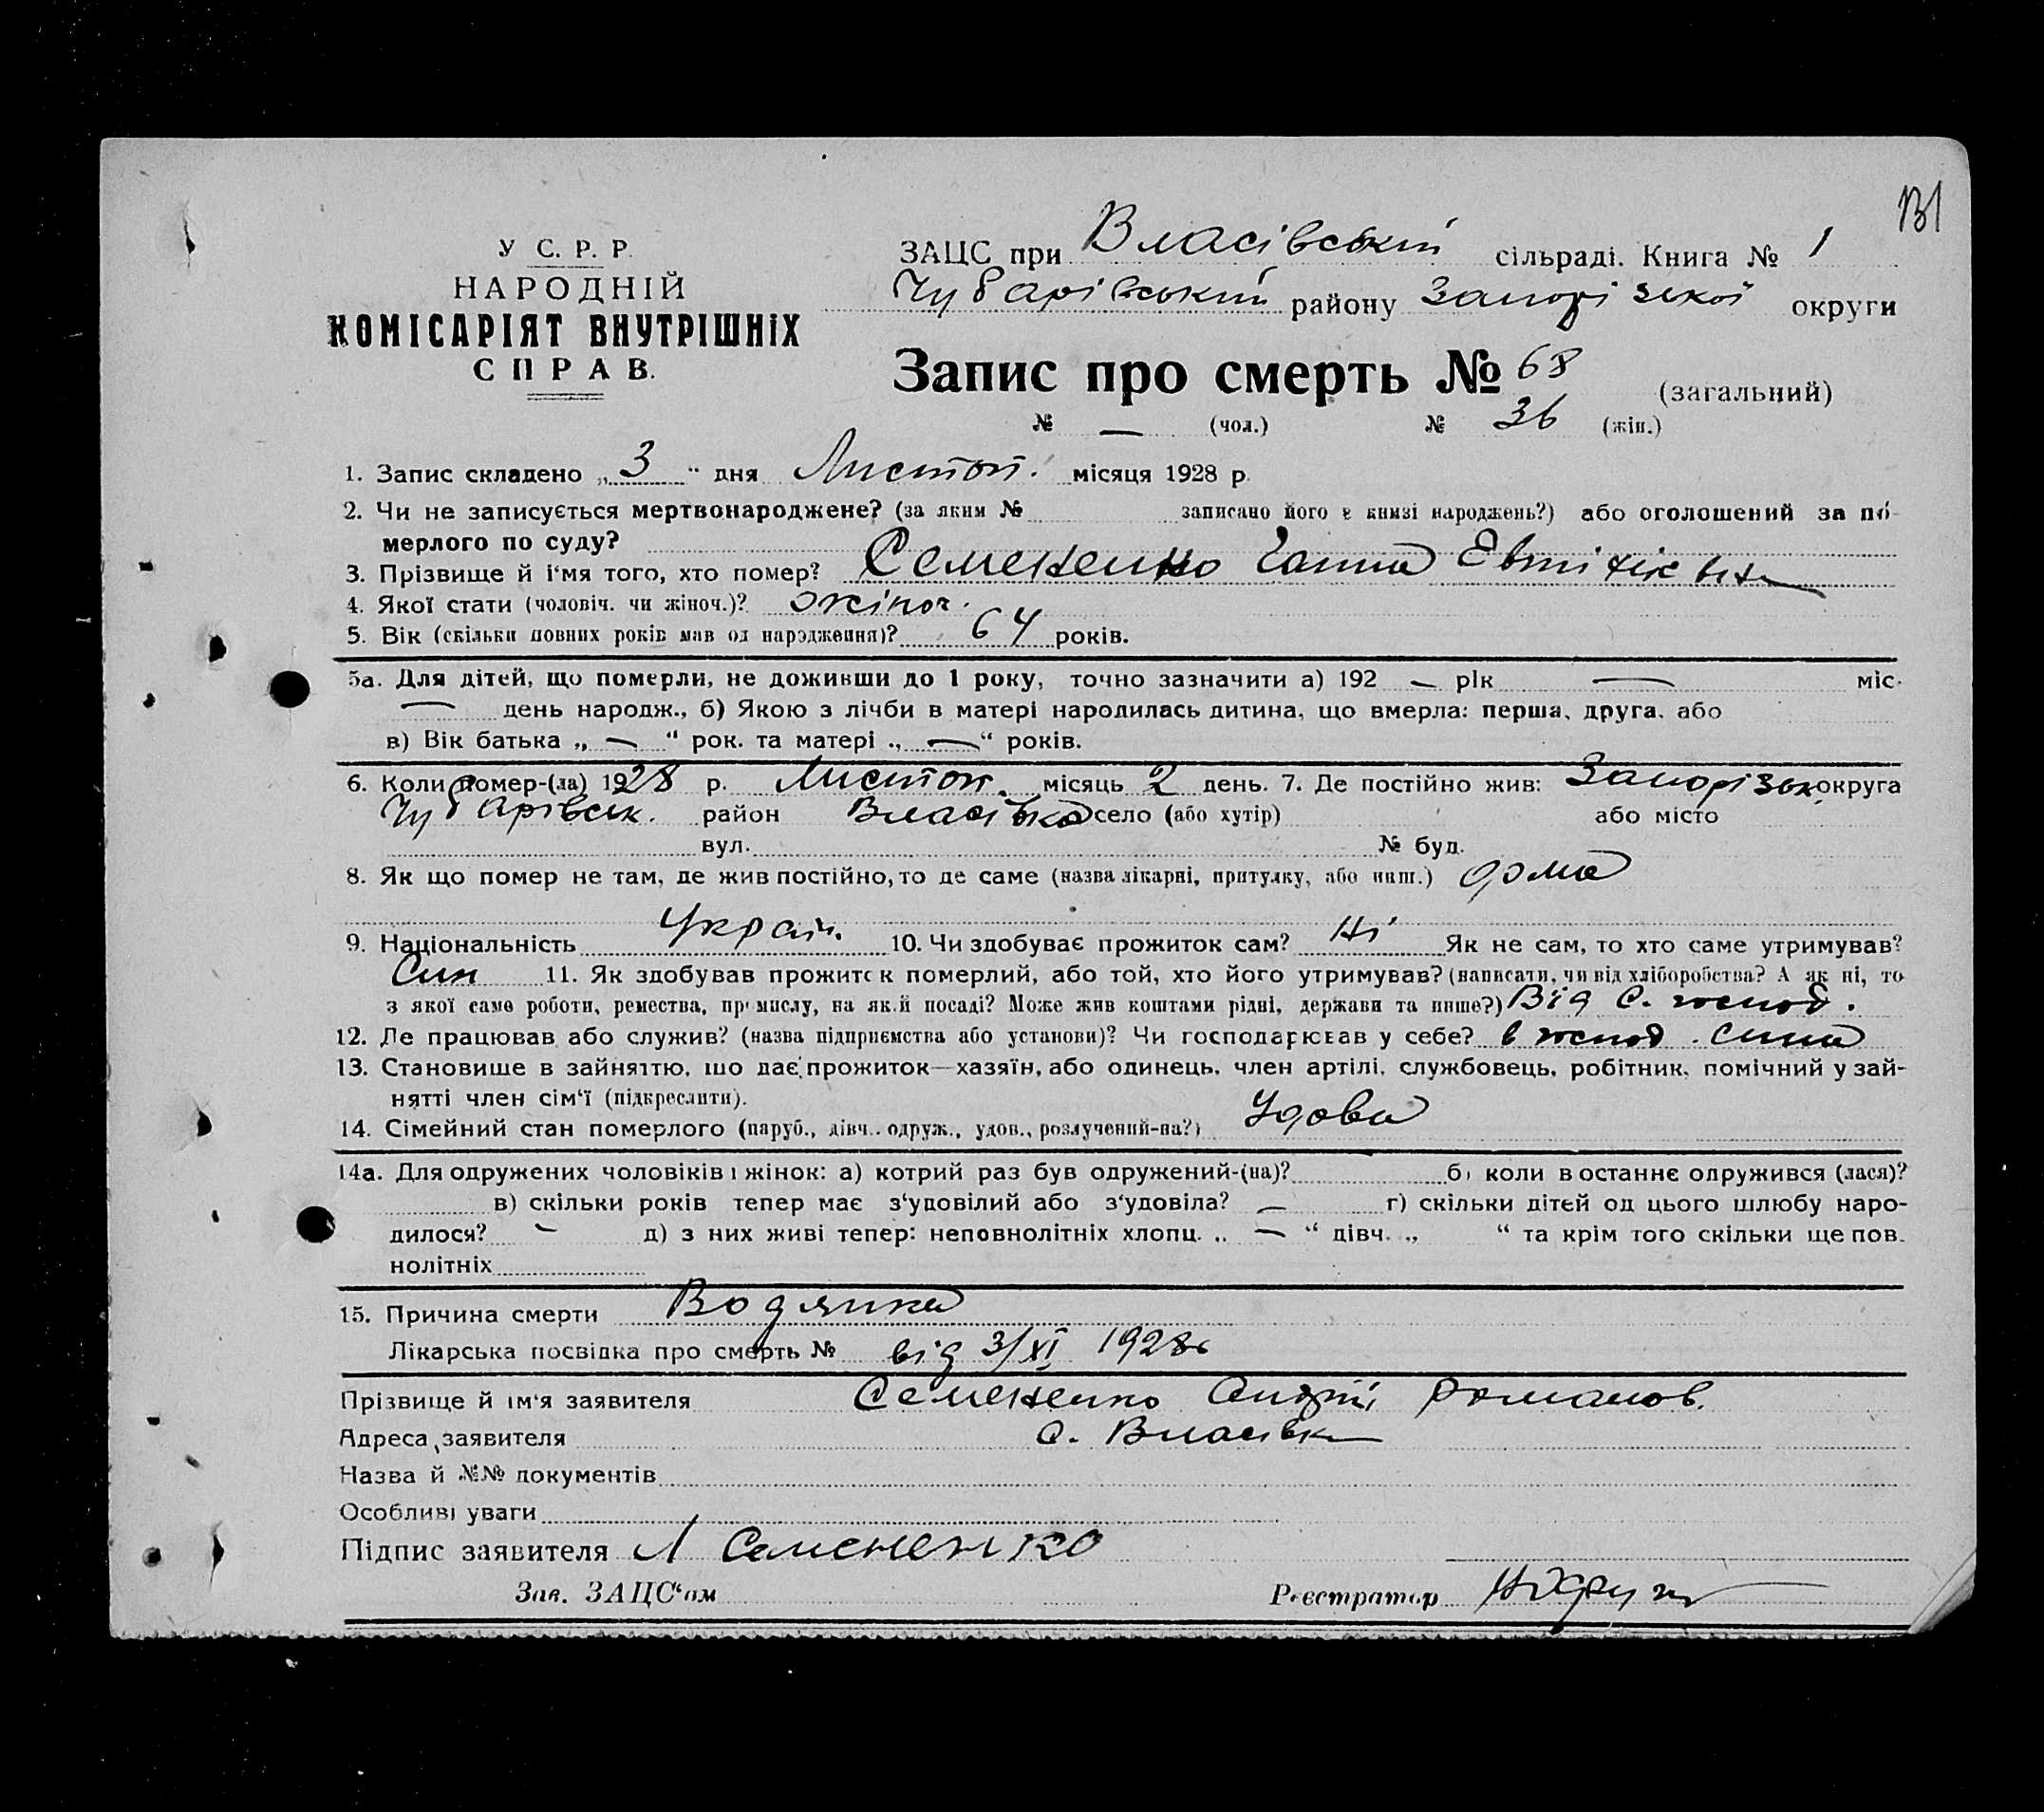 131
У С. Р. Р.
НАРОДНІЙ
КОМІСАРІЯТ ВНУТРІШНІХ
СПРАВ.
ЗАЦС при Власівській сільраді. Книга № 1
Чубарівський району Запорізької округи
Запис про смерть № 68 (загальний)
№ — (чол.) № 36 (жін.)
1. Запис складено „3“ дня Листоп. місяця 1928 р.
2. Чи не записується мертвонароджене? (за яким № записано його в книзі народжень?) або оголошений за по-
мерлого по суду?
3. Прізвище й і‘мя того, хто помер? Семененко Ганна
4. Якої стати (чоловіч. чи жіноч.)? жіноч.
5. Вік (скільки повних років мав од народження)? 64 років.
5а. Для дітей, що померли, не доживши до 1 року, точно зазначити а) 192 — рік — міс.
— день народж., б) Якою з лічби в матері народилась дитина, що вмерла: перша, друга, або
в) Вік батька „—“ рок. та матері „—“ років.
6. Коли помер-(ла) 1928 р. Листоп. місяць 2 день. 7. Де постійно жив: Запорізьк. округа
Чубарівськ. район Власівка село (або хутір) або місто
вул. № буд.
8. Як що помер не там, де жив постійно, то де саме (назва лікарні, притулку, або инш.) дома
9. Національність Україн. 10. Чи здобуває прожиток сам? Ні Як не сам, то хто саме утримував?
Син 11. Як здобував прожиток померлий, або той, хто його утримував? (написати, чи від хліборобства? А як ні, то
з якої саме роботи, ремества, промислу, на якій посаді? Може жив коштами рідні, держави та инше?) Від с. господ.
12. Де працював або служив? (назва підприємства або установи)? Чи господарював у себе? в господ. сина
13. Становище в зайняттю, що дає прожиток—хазяїн, або одинець, член артілі, службовець, робітник, помічний у зай-
нятті член сім‘ї (підкреслити).
14. Сімейний стан померлого (паруб., дівч., одруж., удов., розлучений-на?) Удова
14а. Для одружених чоловіків і жінок: а) котрий раз був одружений-(на)? б) коли в останнє одружився (лася)?
в) скільки років тепер має з‘удовілий або з‘удовіла? — г) скільки дітей од цього шлюбу наро-
дилося? — д) з них живі тепер: неповнолітніх хлопц. „—“ дівч. „ “ та крім того скільки ще пов.
нолітніх
15. Причина смерти Водянка
Лікарська посвідка про смерть № від 3/XI 1928
Прізвище й ім‘я заявителя Семененко Андрій Романов.
Адреса заявителя с. Власівка
Назва й №№ документів
Особливі уваги
Підпис заявителя Семененко
Зав. ЗАЦС‘ом Реєстратор